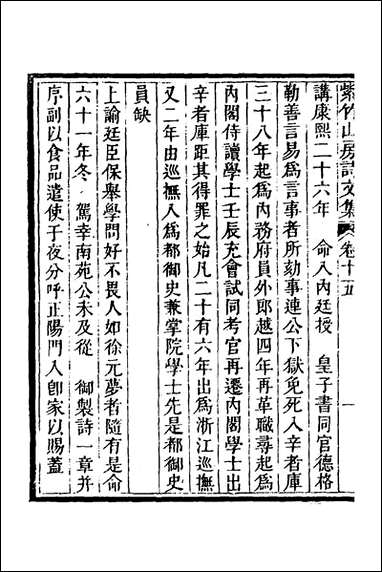 紫竹山房詩文集 卷十五 一
講康熙二十六年 命入內廷授 皇子書同官德格
勒善言易為言事者所劾事連公下獄免死入辛者庫
三十八年起為內務府員外郎越四年再革職尋起為
內閣侍讀學士壬辰充會試同考官再遷內閣學士出
辛者庫距其得罪之始凡二十有六年出為浙江巡撫
又二年由巡撫入為都御史兼掌院學士先是都御史
員缺
上諭廷臣保舉學問好不畏人如徐元夢者隨有是命
六十一年冬 駕幸南苑公未及從 御製詩一章并
序副以食品遣使于夜分呼正陽門入卽家以賜蓋